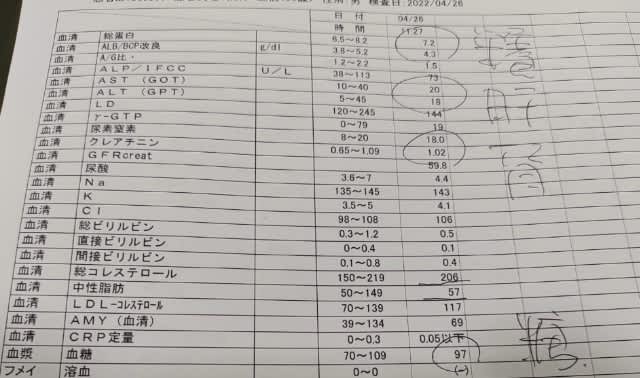 性別 男 検査日:2022/04/26
日 付 04/26
時 間 11:27
血清 総蛋白 6.5～8.2 7.2
血清 ALB/BCP改良 g/dl 3.8～5.2 4.3
血清 A/G比・ 1.2～2.2 1.5
血清 ALP/IFCC U/L 38～113 73
血清 AST (GOT) 10～40 20
血清 ALT (GPT) 5～45 18
血清 LD 120～245 144
血清 γ-GTP 0～79 19
血清 尿素窒素 8～20 18.0
血清 クレアチニン 0.65～1.09 1.02
血清 GFRcreat 59.8
血清 尿酸 3.6～7 4.4
血清 Na 135～145 143
血清 K 3.5～5 4.1
血清 Cl 98～108 106
血清 総ビリルビン 0.3～1.2 0.5
血清 直接ビリルビン 0～0.4 0.1
血清 間接ビリルビン 0.1～0.8 0.4
血清 総コレステロール 150～219 206
血清 中性脂肪 50～149 57
血清 LDL-コレステロール 70～139 117
血清 AMY (血清) 39～134 69
血清 CRP定量 0～0.3 0.05以下
血漿 血糖 70～109 97
フメイ 溶血 0～0 (-)